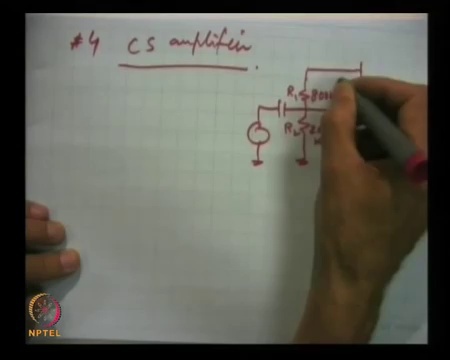 #4 CS amplifier
R1
R2
NPTEL